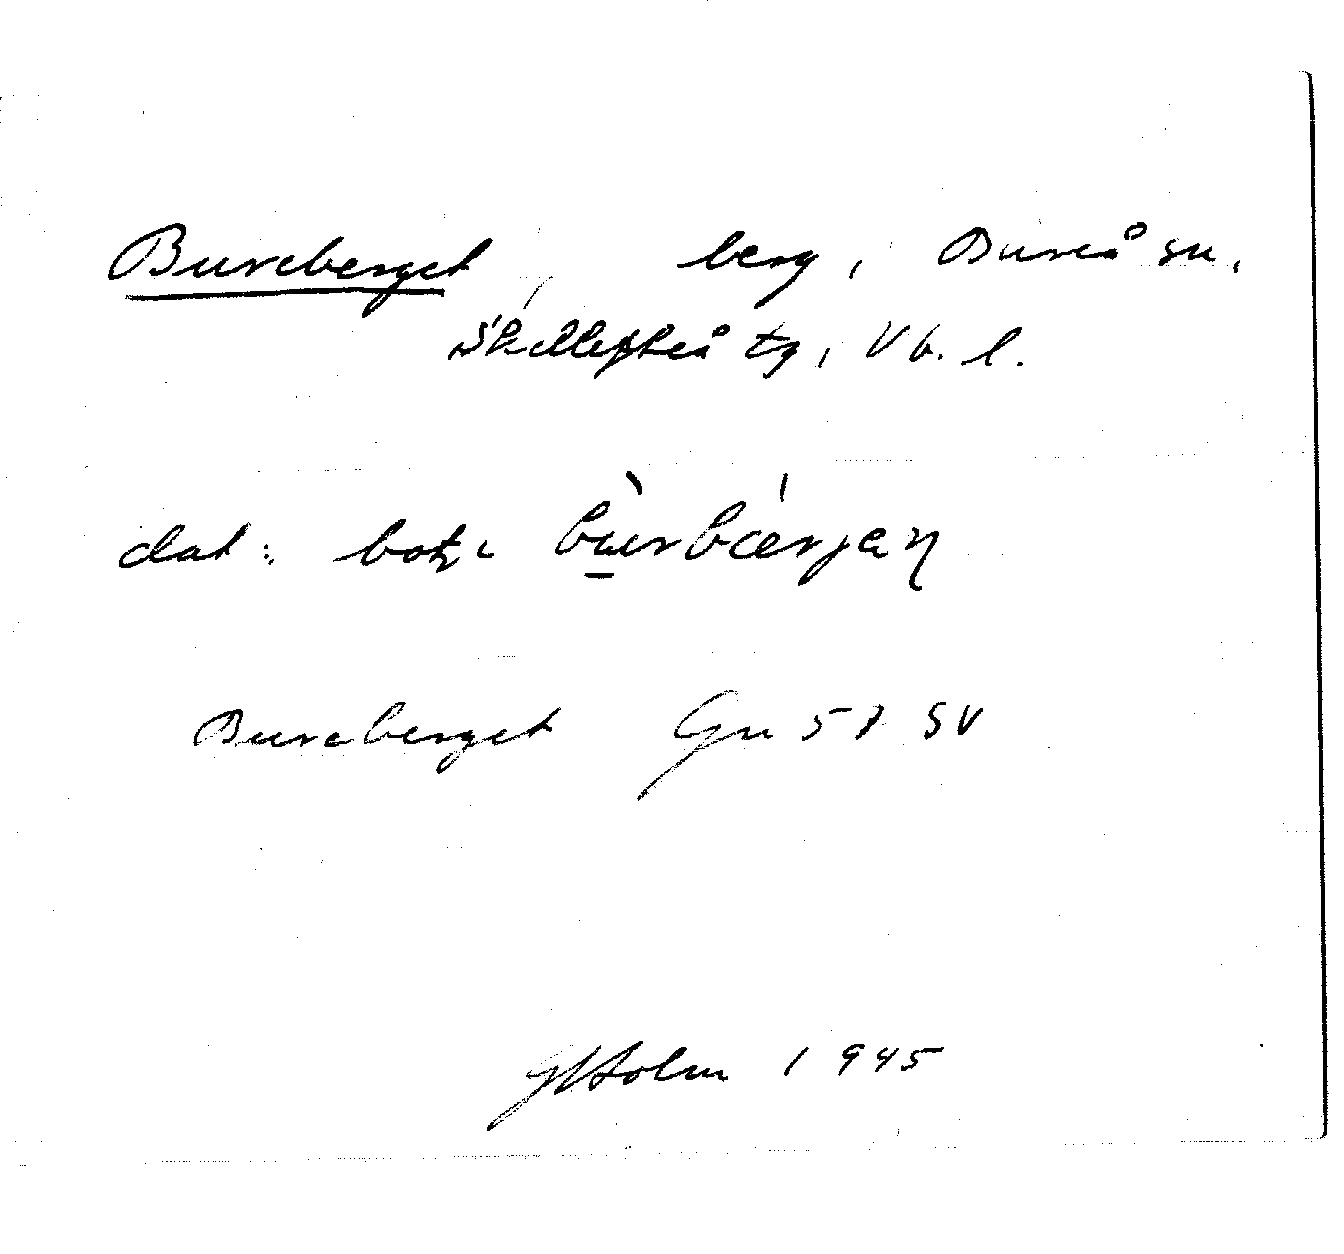 Bureberget, berg, Bureå sn,
Skellefteå tg, Vb. l.
dat: bot. bu̠rbærjen
Bureberget Gu 57 SV
GHolm 1945